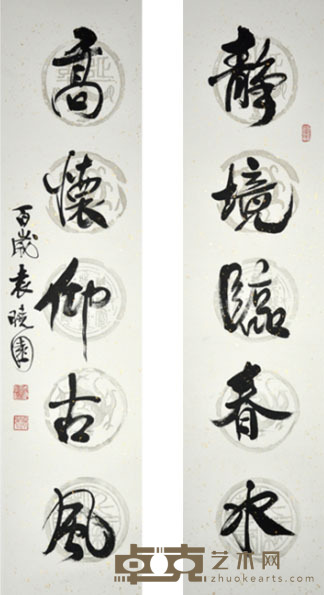 靜境臨春水
高懷仰古風
百歲袁曉園
卓克艺术网
www.zhuokearts.com